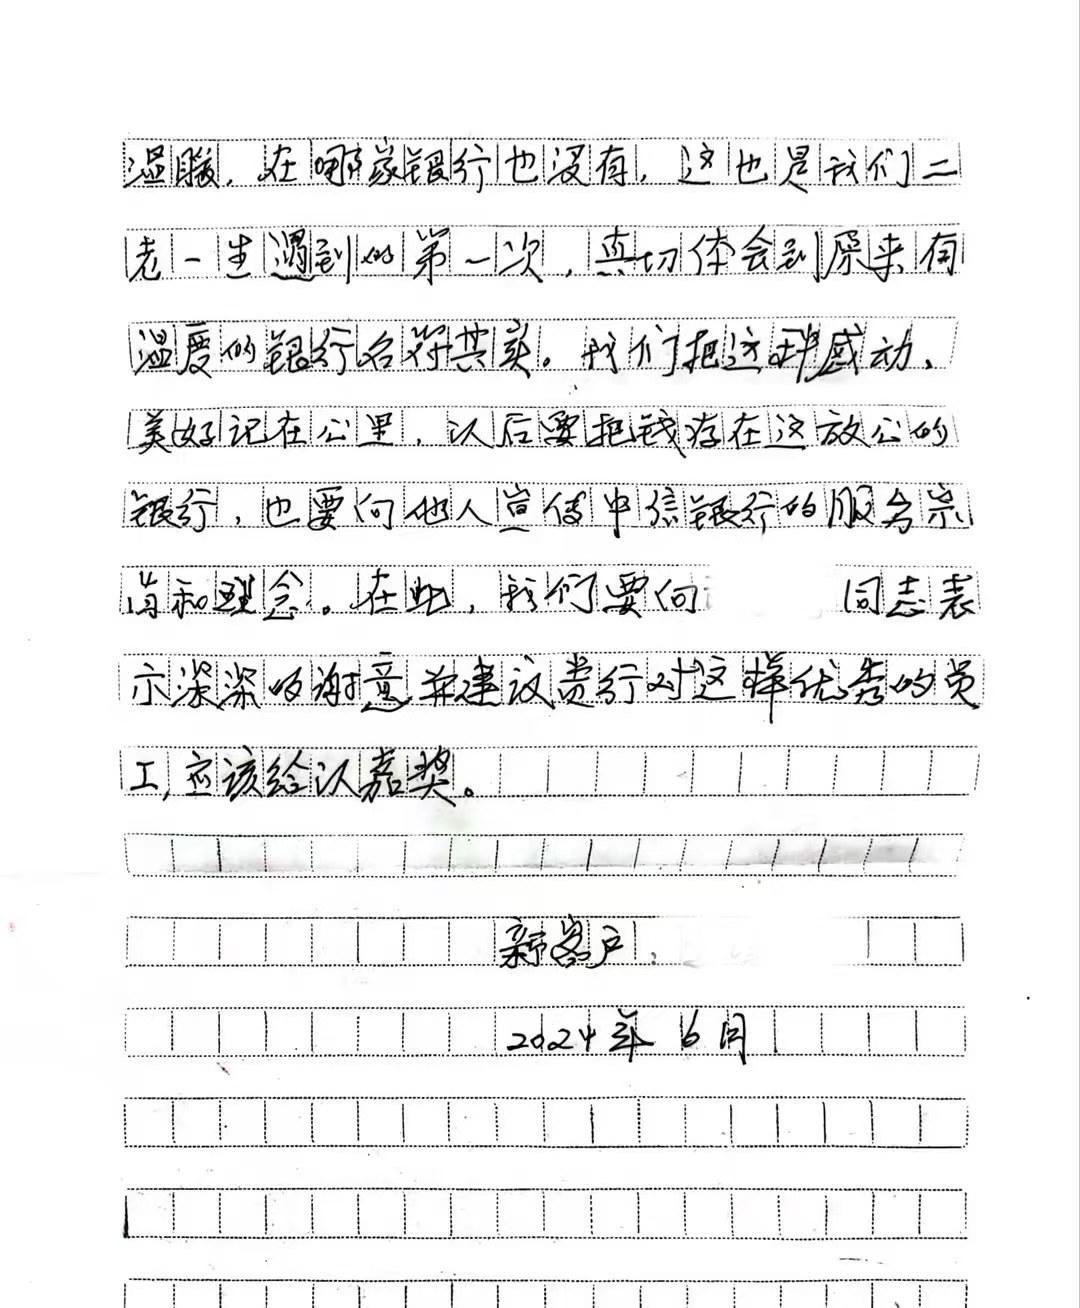 温暖，在哪家银行也没有，这也是我们二
老一生遇到的第一次，真切体会到原来有
温度的银行名符其实。我们把这种感动、
美好记在心里，以后要把钱存在这放心的
银行，也要向他人宣传中信银行的服务宗
旨和理念。在此，我们要向 同志表
示深深的谢意并建议贵行对这样优秀的员
工，应该给以嘉奖。
新客户：
2024年6月